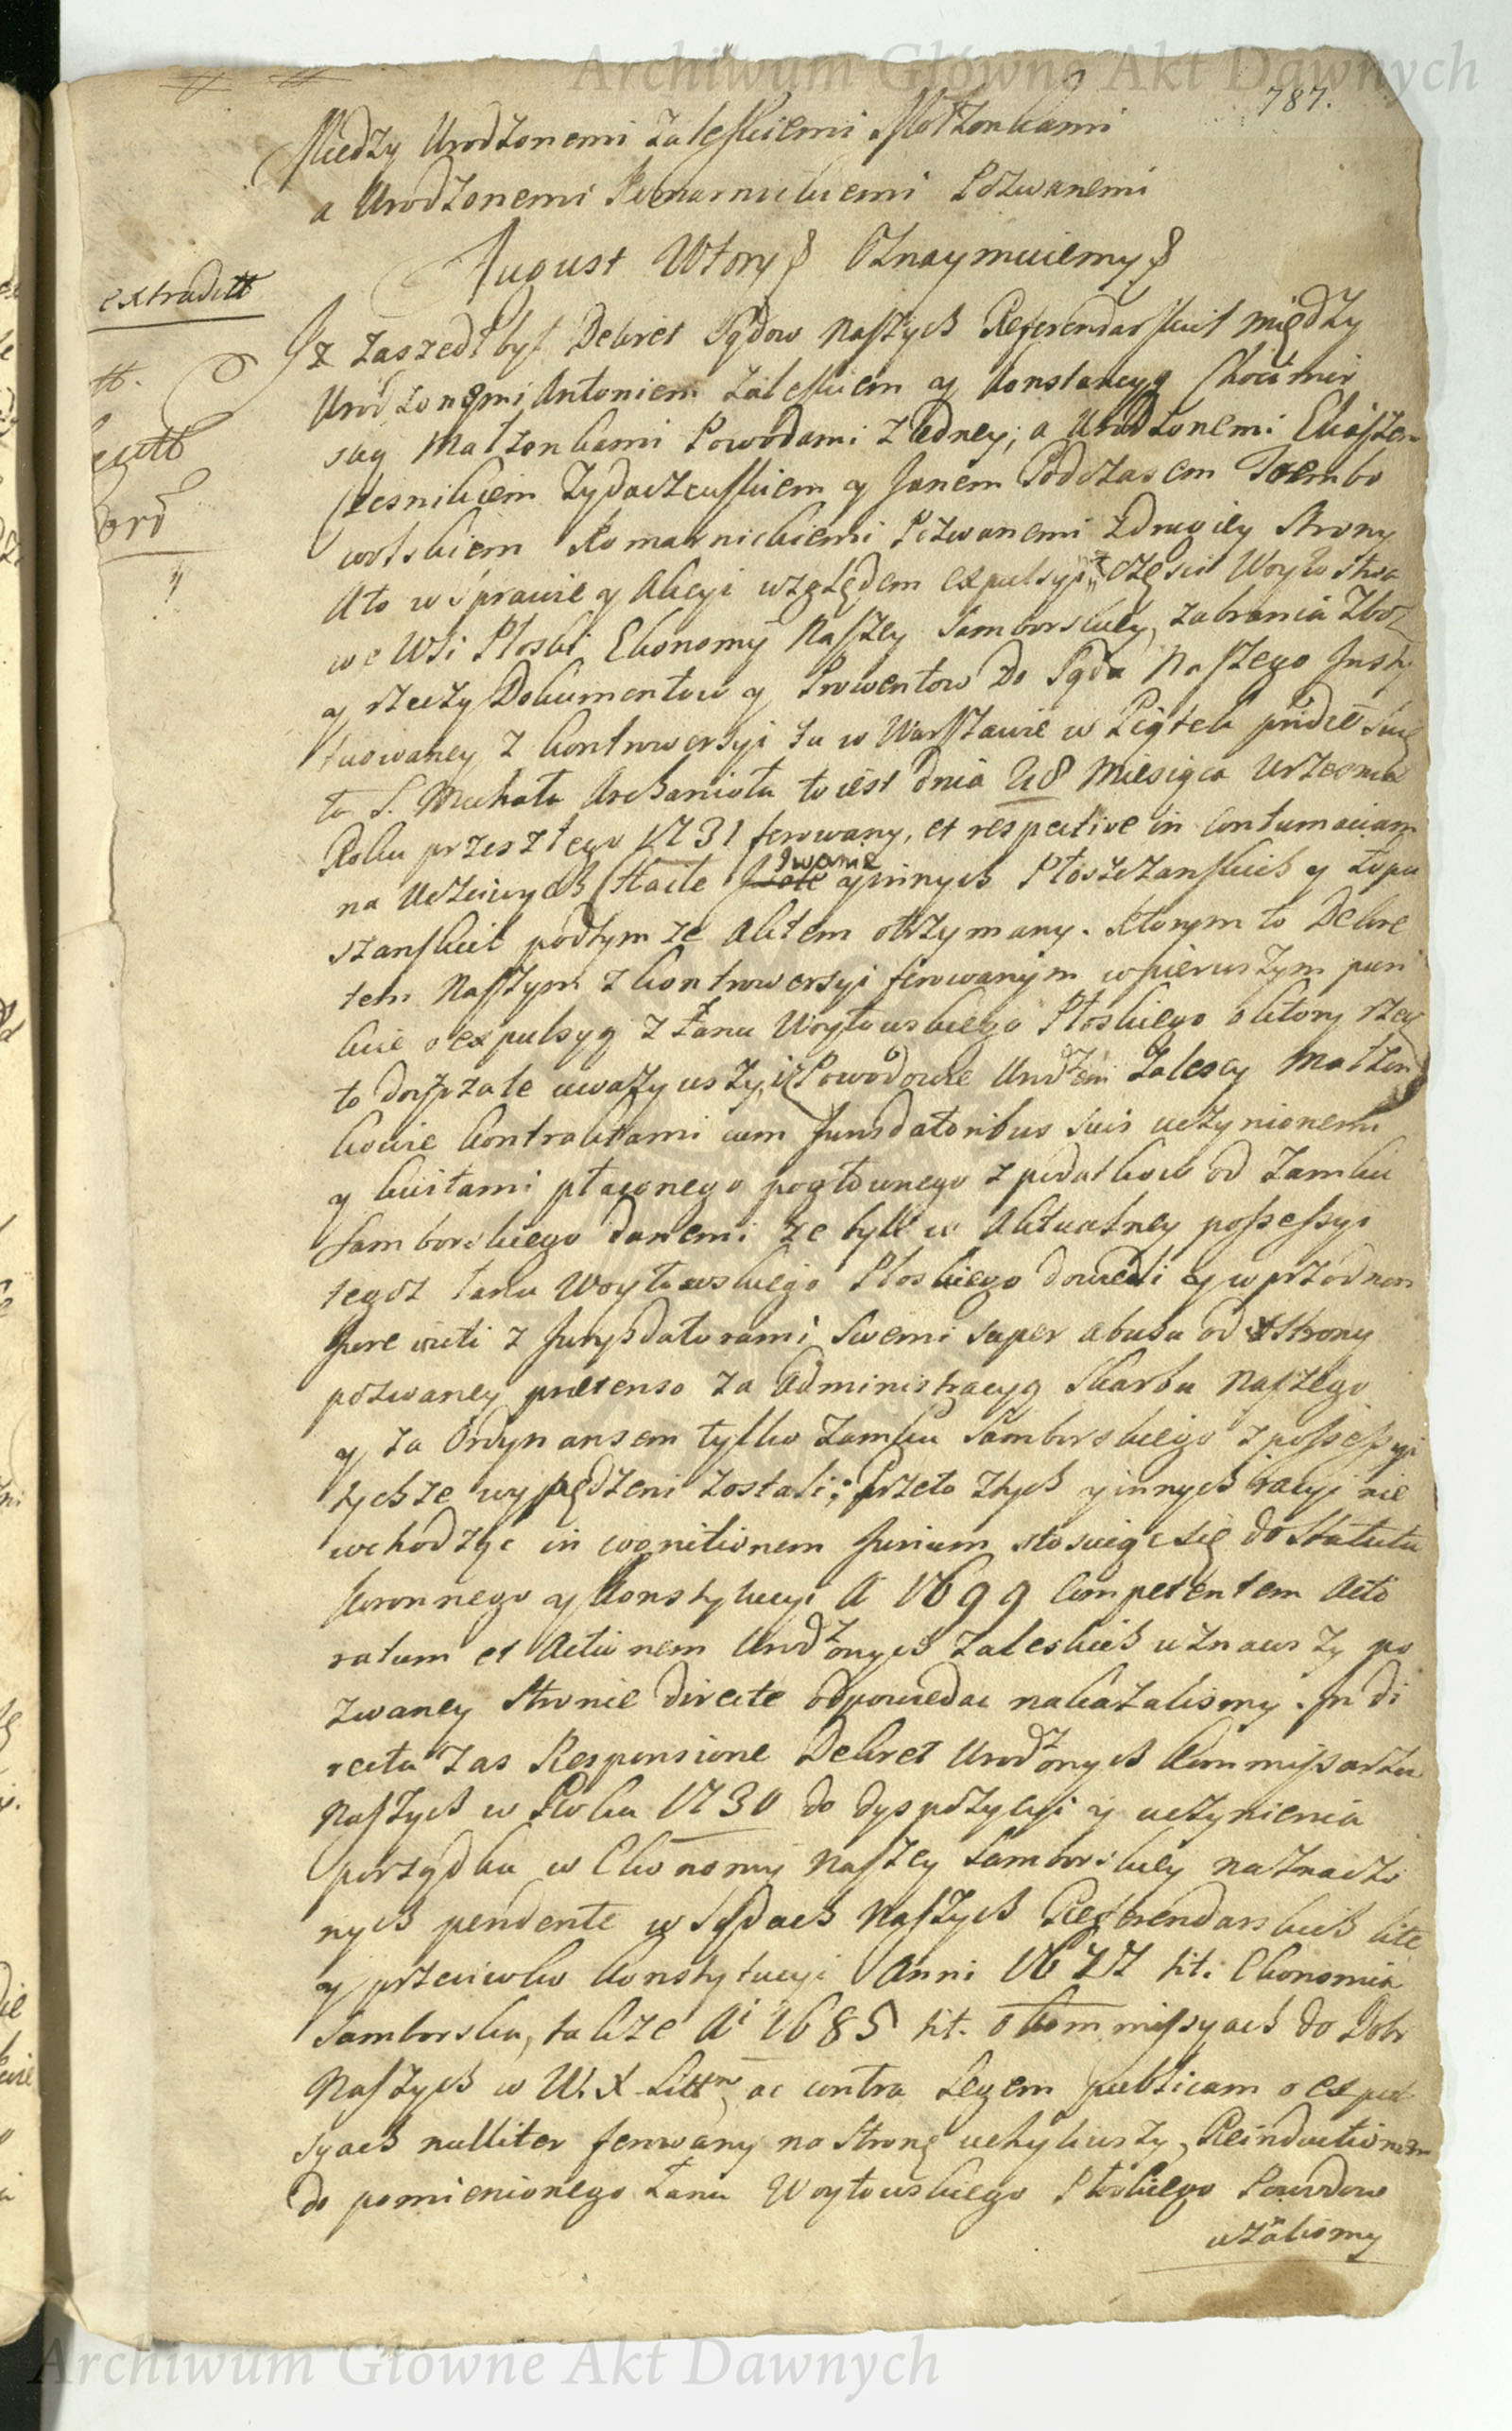 Archiwum Główne Akt Dawnych
787.
Między Urodzonemi Zaleskiemi Małżonkami
a Urodzonemi Komarnickiemi Pozwanemi
August Wtory Oznaymuiemy
extradit
Jż zaszedł był Dekret Sądow Naszych Referendarskich między
Urodzonemi Antoniem Zaleskiem y Konstancyą Chocimir
ską Małżonkami Powodami z iedney, a Urodzonemi Eliaszem
Czesnikiem Zydaczewskiem y Janem Podczasem Trembo
wolskiem Komarnickiemi Pozwanemi z drugiey Strony
A to w Sprawie y Akcyi względem expulsyi z częsci Woytostwa
we Wsi Płoski Ekonomij Naszey Samborskiey, zabrania Zboż
y rzeczy Dokumentow y Prowentow do Sądu Naszego Insty
tuowaney z Kontrowersyi tu w Warszawie w Piątek pridie Swię
ta S. Michała Archanioła to iest dnia 28 Miesiąca Wrzesnia
Roku przeszłego 1731 ferowany, et respective in Contumaciam
na Uczciwych Hacie Jwanie y innych Płoszczanskich y Łopu
szanskich podtym ze Aktem otrzymany. Ktorym to Dekre
tem Naszym z Kontrowersyi ferowanym w pierwszym pun
kcie o expulsyą z Łanu Woytowskiego Płoskiego o ktory rzecz
to doyrzale uważywszy, iż Powodowie Urodzeni Zalescy Małżon
kowie Kontraktami cum Jurisdatoribus suis uczynionemi
y kwitami płaconego pogłownego z podatkow od Zamku
Samborskiego danemi że byli w Aktualney possessyi
tegoż Łanu Woytowskiego Płoskiego dowiedli y w przód non
Jure victi z Jurysdatorami Swemi super abusu od Strony
pozwaney pretenso za Administracyą Skarbu Naszego
y za Ordynansem tylko Zamku Samborskiego z possessyi
tychże wypędzeni zostali; Przeto z tych y innych racyi nie
wchodząc in cognitionem Jurium stosuiąc się do Statutu
Koronnego y Konstytucyi A 1699 Competentem Acto
ratum et Actionem Urodzonych Zaleskich uznawszy po
zwaney Stronie directe odpowiedac nakazalismy. In di
recta zas Responsione Dekret Urodzonych Kommissarzow
Naszych w Roku 1730 do dyspozycyi y uczynienia
porządku w Ekonomij Naszey Samborskiey naznaczo
nych pendente w Sądach Naszych Referendarskich lite
y przeciwko Konstytucyi Anni 1677 tit. Ekonomia
Samborska, także Ai 1685 tit. o Kommissyach do Dobr
Naszych w W. X. Littm, ac contra Legem publicam o expul
syach nulliter ferowany na Stronę uchyliwszy, Reinductionem
do pomienionego Łanu Woytowskiego Płoskiego Powodow
uznalismy
Archiwum Główne Akt Dawnych